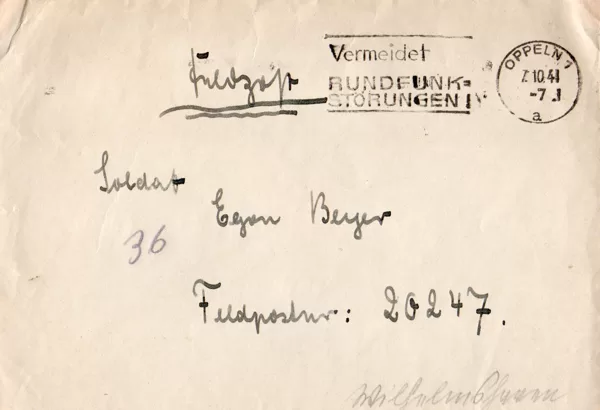 Feldpost
Vermeidet
RUNDFUNK-
STÖRUNGEN!
OPPELN 1
7.10.41
-7
a
Soldat
Egon Beyer
36
Feldpostnr: 20247.
Wilhelmshaven